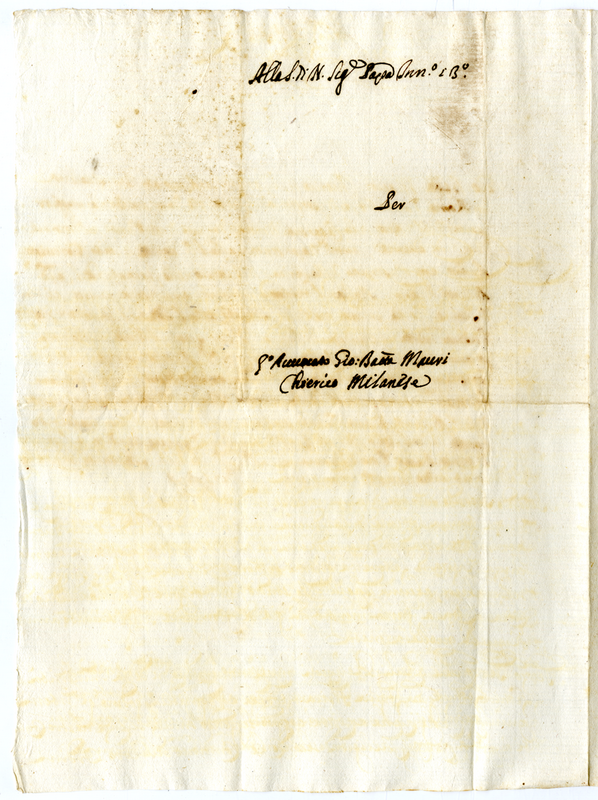 Alla S. di N. Sig.re Papa Inn.o 13.o
Per
Gio: Batta Mauri
Chierico Milanese